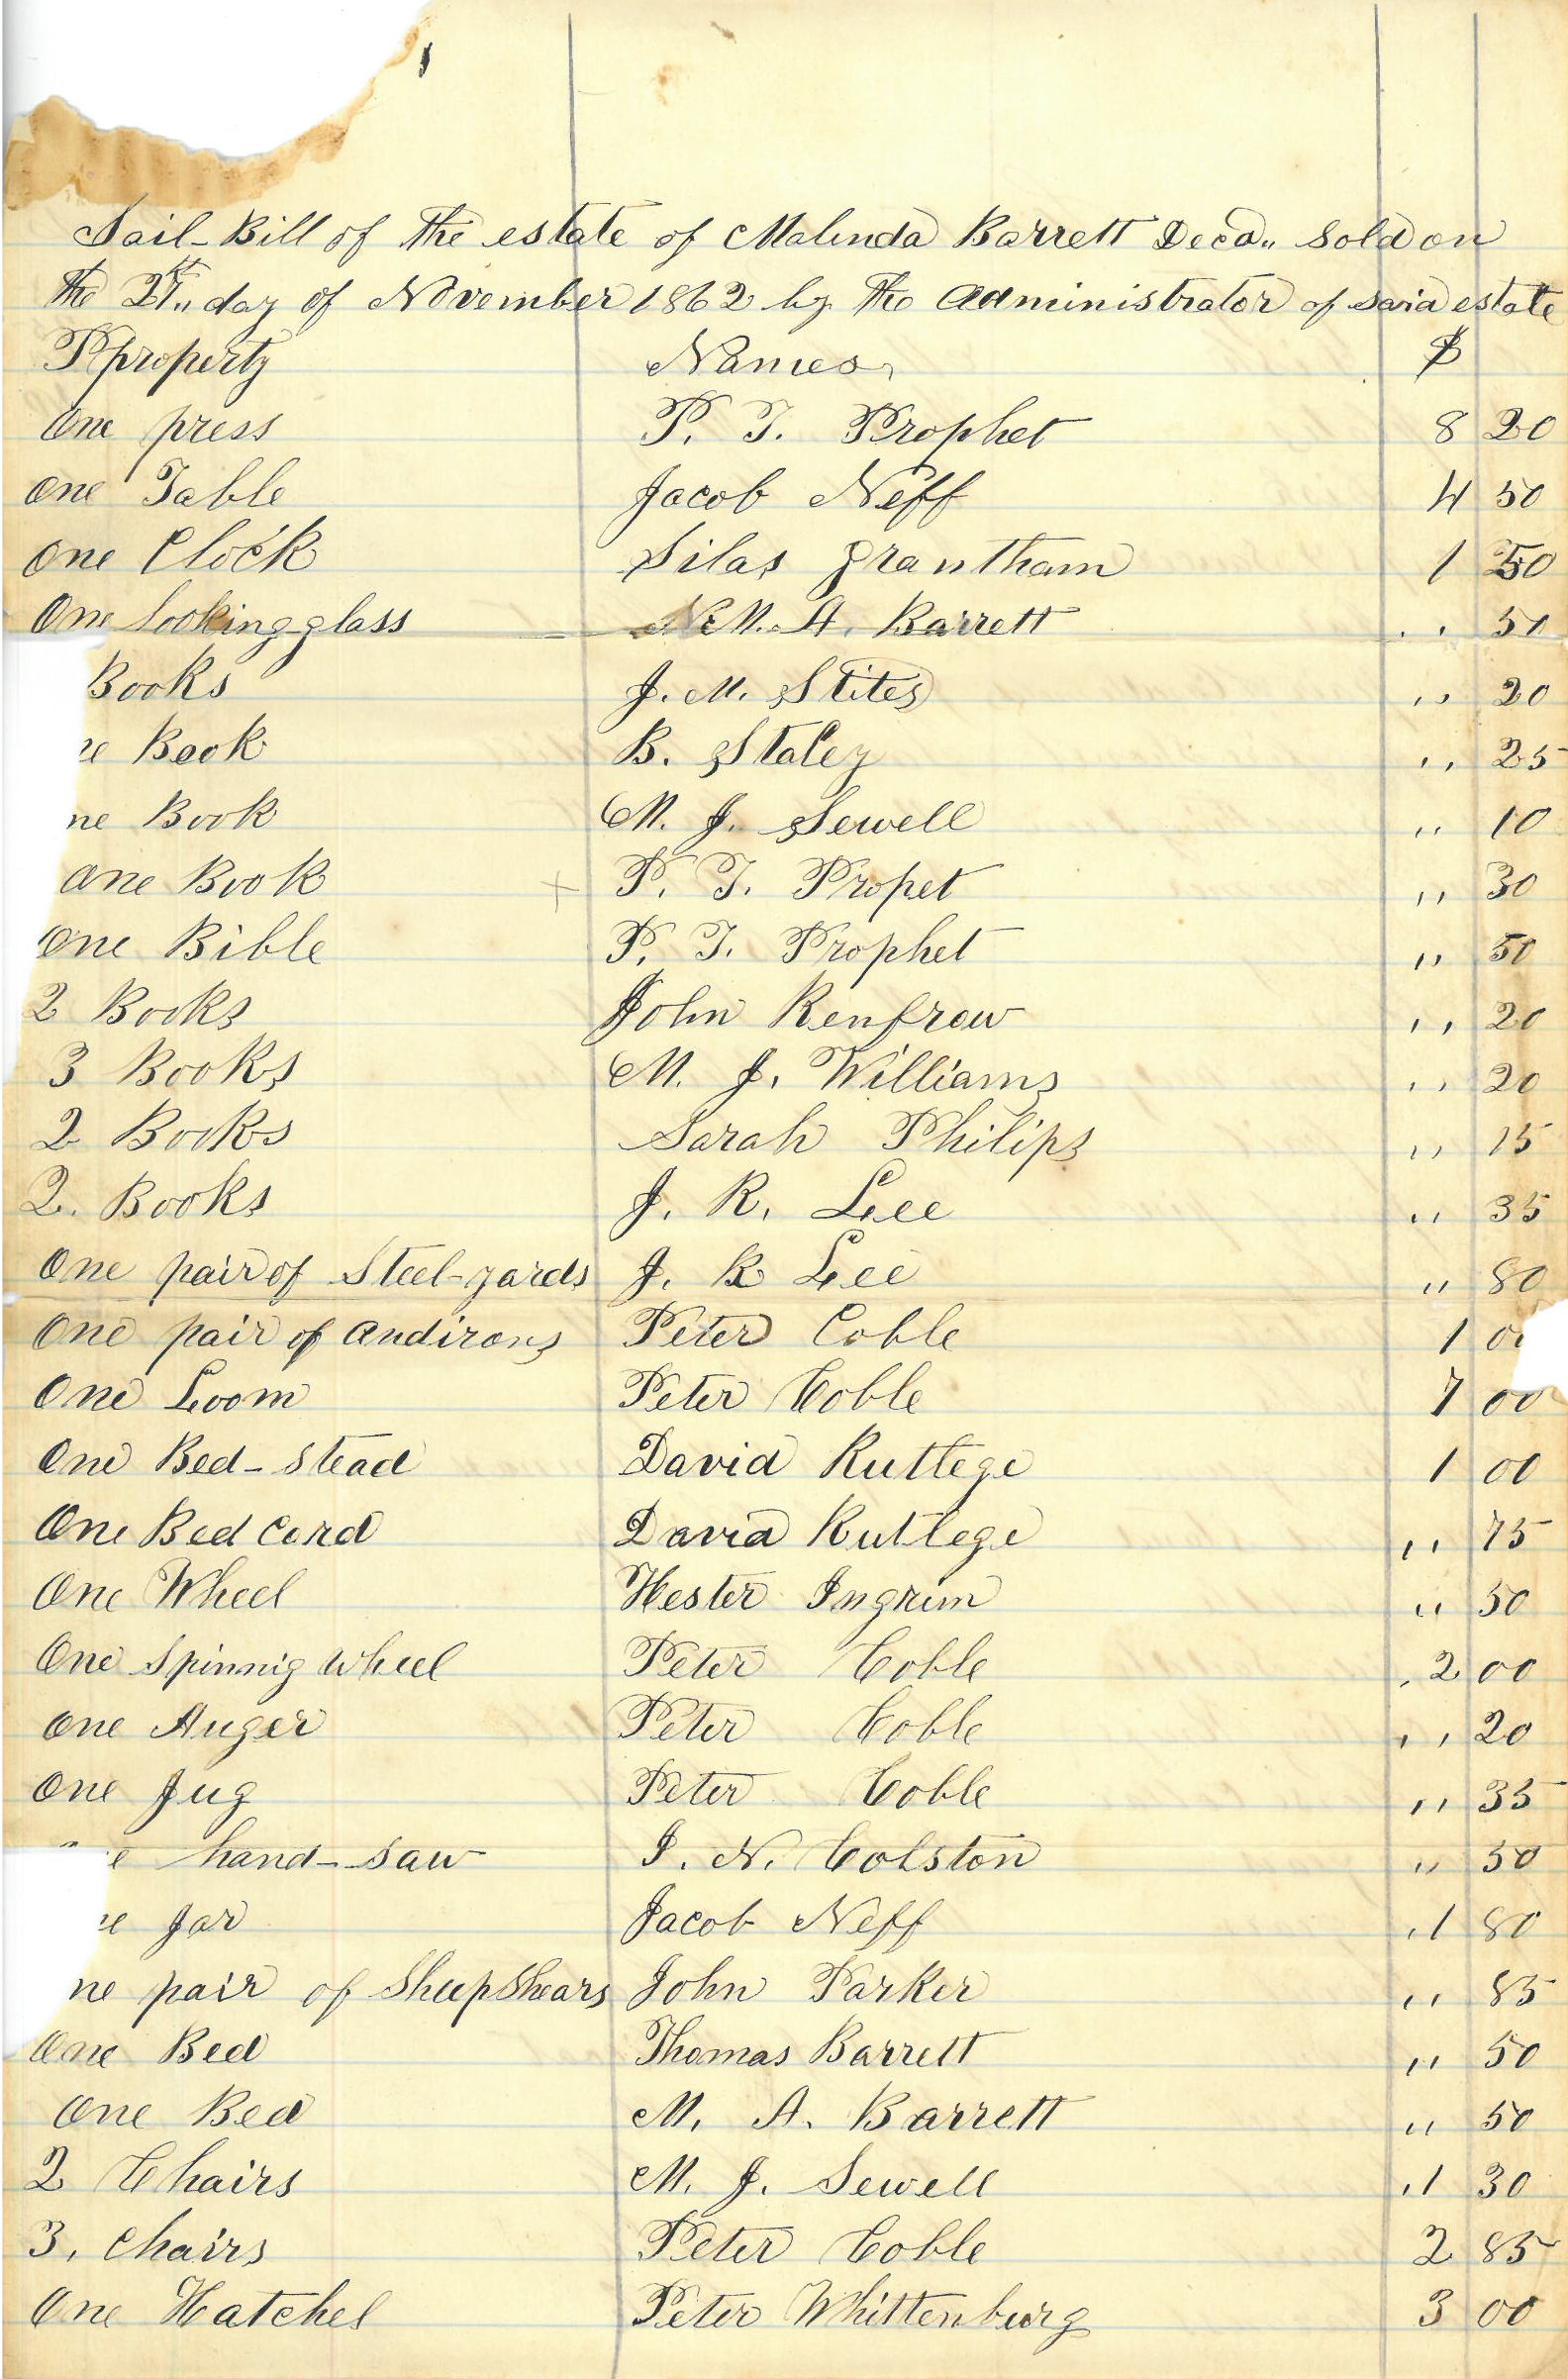 Sail-Bill of the estate of Malinda Barrett Decd„ Sold on
the 27th„ day of November 1862 by the Administrator of said estate
Pproperty Names $
One press P. T. Prophet 8 20
One Table Jacob Neff 4 50
One Clock Silas Grantham 1 50
One looking-glass M. A. Barrett „ 50
Books J. M. Stites „ 20
ne Book B. Staley „ 25
ne Book M. J. Sewell „ 10
One Book P. T. Propet „ 30
One Bible P. T. Prophet „ 50
2 Books John Renfrow „ 20
3 Books M. J. Williams „ 20
2 Books Sarah Philips „ 15
2. Books J. R. Lee „ 35
One pair of Steel-yards J. R Lee „ 80
One pair of Andirons Peter Coble 1 0
One Loom Peter Coble 7 00
One Bed-stead David Ruttege 1 00
One Bed Cord David Rutlege „ 75
One Wheel Hester Ingrim „ 50
One Spinnig Wheel Peter Coble 2 00
One Auger Peter Coble „ 20
One Jug Peter Coble „ 35
e hand-saw I. N. Colston „ 50
ne Jar Jacob Neff „ 80
ne pair of SheepShears John Parker „ 85
One Bed Thomas Barrett „ 50
One Bed M. A. Barrett „ 50
2 Chairs M. J. Sewell „ 30
3. Chairs Peter Coble 2 85
One Hatchel Peter Whittenburg 3 00